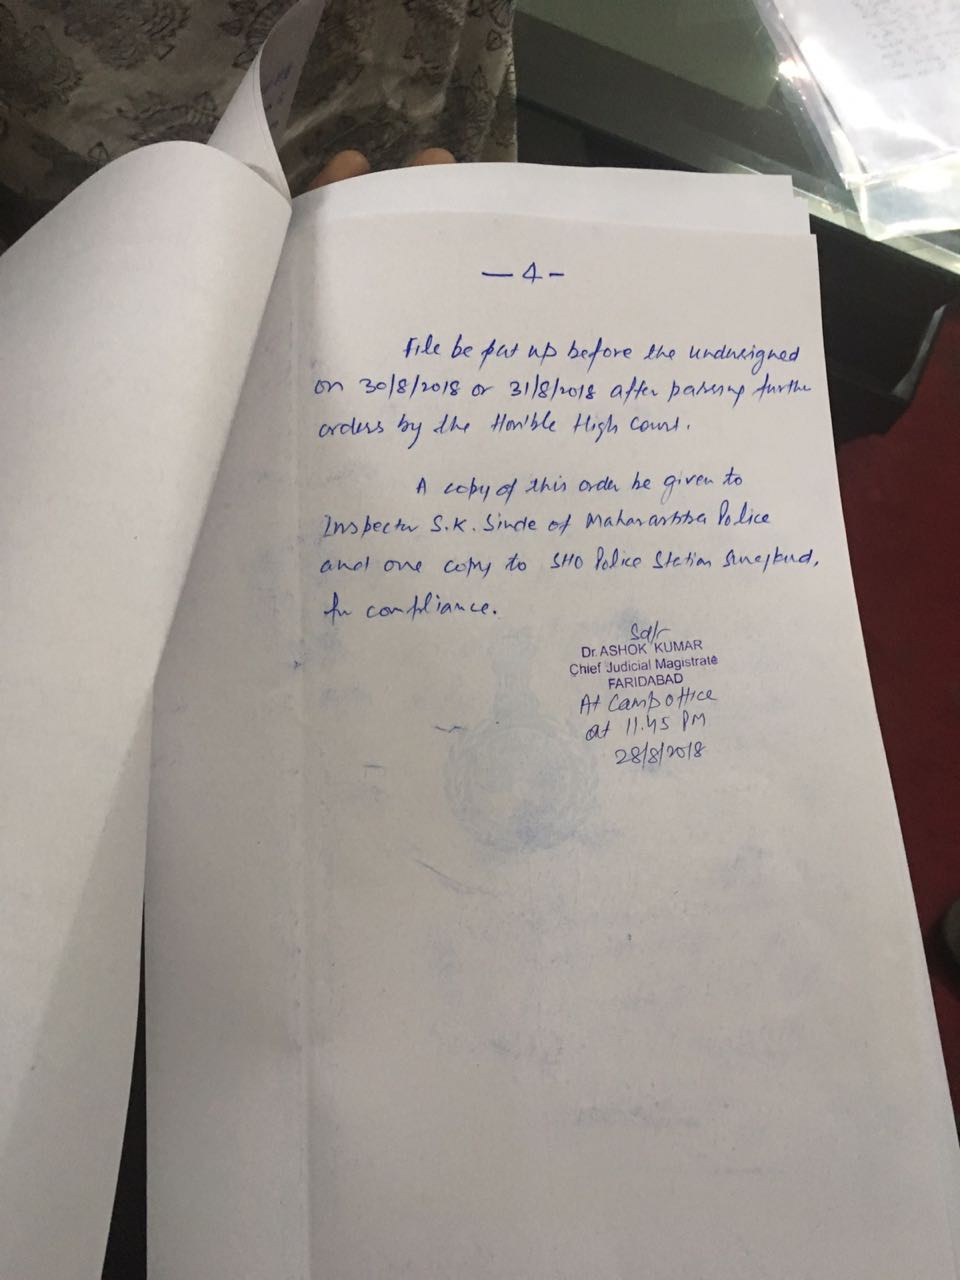 — 4 -
File be put up before the undersigned
on 30/8/2018 or 31/8/2018 after passing further
orders by the Hon'ble High Court.
A copy of this order be given to
Inspector S.K. Sinde of Maharashtra Police
and one copy to SHO Police Station Surajkund,
for compliance.
Sd/-
Dr. ASHOK KUMAR
Chief Judicial Magistrate
FARIDABAD
At Camp office
at 11.45 PM
28/8/2018